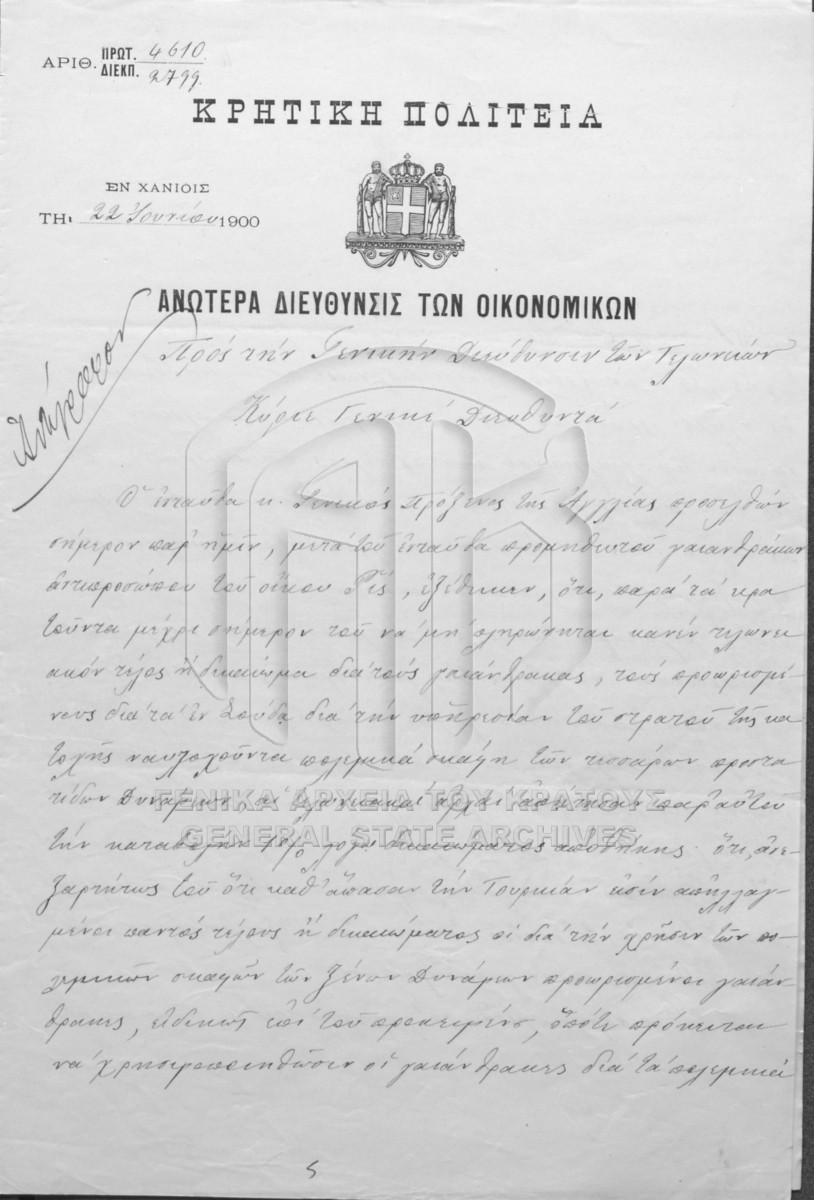 ΑΡΙΘ. ΠΡΩΤ. 4610.
ΔΙΕΚΠ. 2799.
ΚΡΗΤΙΚΗ ΠΟΛΙΤΕΙΑ
ΕΝ ΧΑΝΙΟΙΣ
ΤΗι 22 Ἰουνίου 1900
ΑΝΩΤΕΡΑ ΔΙΕΥΘΥΝΣΙΣ ΤΩΝ ΟΙΚΟΝΟΜΙΚΩΝ
Ἀντίγραφον
Πρός τήν Γενικήν Διεύθυνσιν τῶν Τελωνείων
Κύριε Γενικέ Διευθυντά
Ὁ ἐνταῦθα κ. Γενικός Πρόξενος τῆς Ἀγγλίας προσελθών
σήμερον παρ' ἡμῖν, μετά τοῦ ἐνταῦθα προμηθευτοῦ γαιανθράκων
ἀντιπροσώπου τοῦ οἴκου, ἐξέθηκεν, ὅτι, παρά τά κρα
τοῦντα μέχρι σήμερον τοῦ νά μή πληρώνηται κανέν τελωνει
ακόν τέλος ἤ δικαίωμα διά τούς γαιάνθρακας, τούς προωρισμέ
νους διά τά ἐν Σούδᾳ διά τήν ὑπηρεσίαν τοῦ στρατοῦ τῆς κα
τοχῆς ναυλοχοῦντα πολεμικά σκάφη τῶν τεσσάρων προστα
τίδων Δυνάμεων, αἱ τελωνειακαί ἀρχαί ἀπῄτησαν παρ' αὐτοῦ
τήν καταβολήν 1% λόγῳ δικαιώματος ἀποθήκης. ὅτι, ἀνε
ξαρτήτως τοῦ ὅτι καθ' ἅπασαν τήν Τουρκίαν εἰσίν ἀπηλλαγ
μένοι παντός τέλους ἤ δικαιώματος οἱ διά τήν χρῆσιν τῶν πο
λεμικῶν σκαφῶν τῶν ξένων Δυνάμεων προωρισμένοι γαιάν
θρακες, εἰδικῶς ἐπί τοῦ προκειμένου, ὁπότε πρόκειται
νά χρησιμοποιηθῶσιν οἱ γαιάνθρακες διά τά πολεμικά
ΓΕΝΙΚΑ ΑΡΧΕΙΑ ΤΟΥ ΚΡΑΤΟΥΣ
GENERAL STATE ARCHIVES